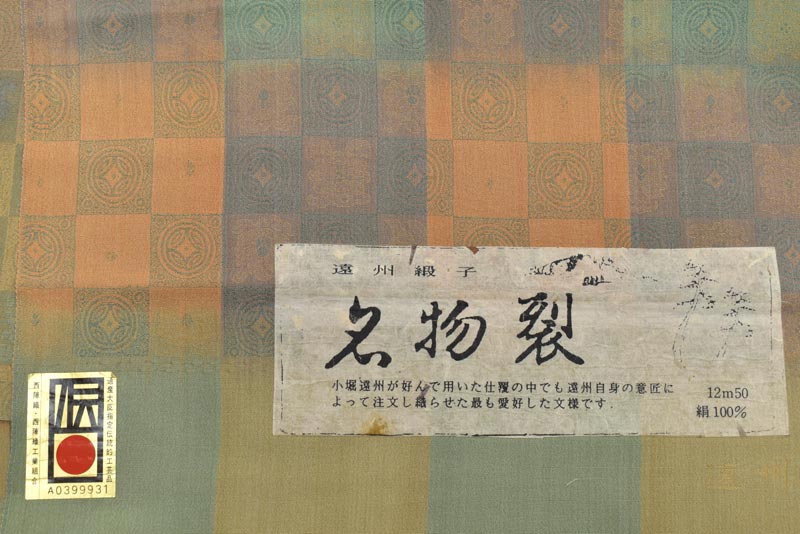 遠州緞子
名物裂
小堀遠州が好んで用いた仕覆の中でも遠州自身の意匠に
よって注文し織らせた最も愛好した文様です.
12m50
絹100%
通産大臣指定伝統的工芸品
伝
西陣織・西陣織工業組合
A0399931